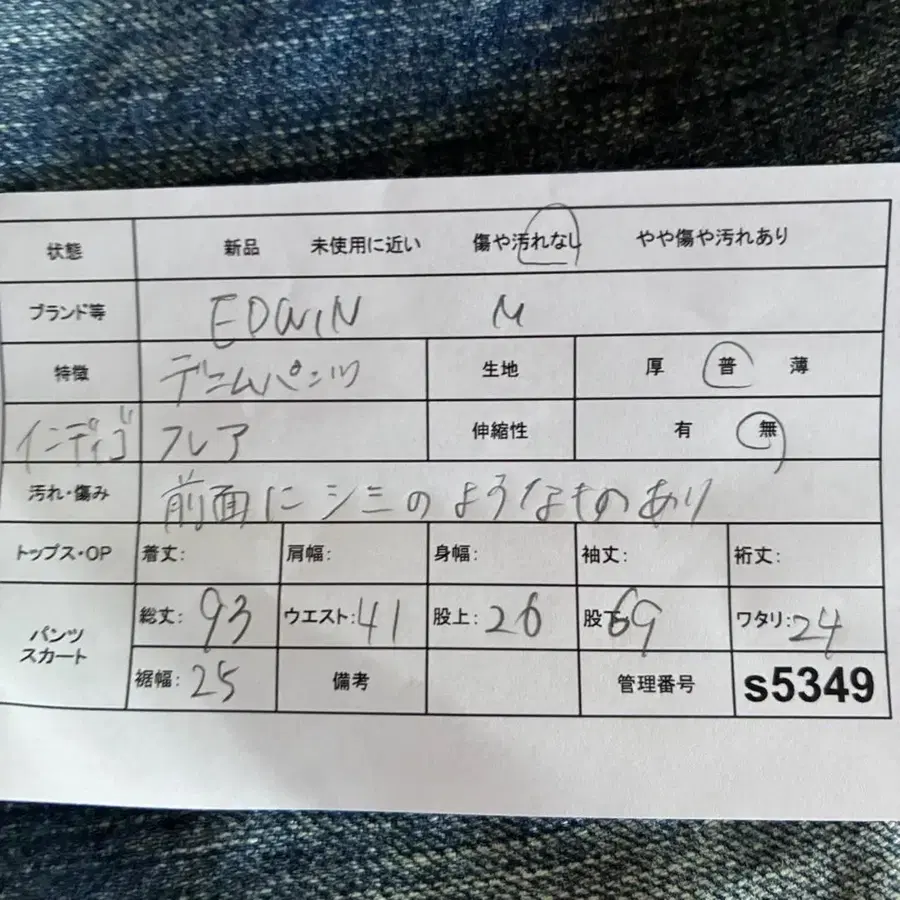 状態 新品 未使用に近い 傷や汚れなし やや傷や汚れあり
ブランド等 EDWIN M
特徴 デニムパンツ 生地 厚 普 薄
インディゴ フレア 伸縮性 有 無
汚れ・傷み 前面にシミのようなものあり
トップス・OP 着丈: 肩幅: 身幅: 袖丈: 裄丈:
パンツ スカート 総丈: 93 ウエスト: 41 股上: 26 股下 69 ワタリ: 24
裾幅: 25 備考 管理番号 s5349